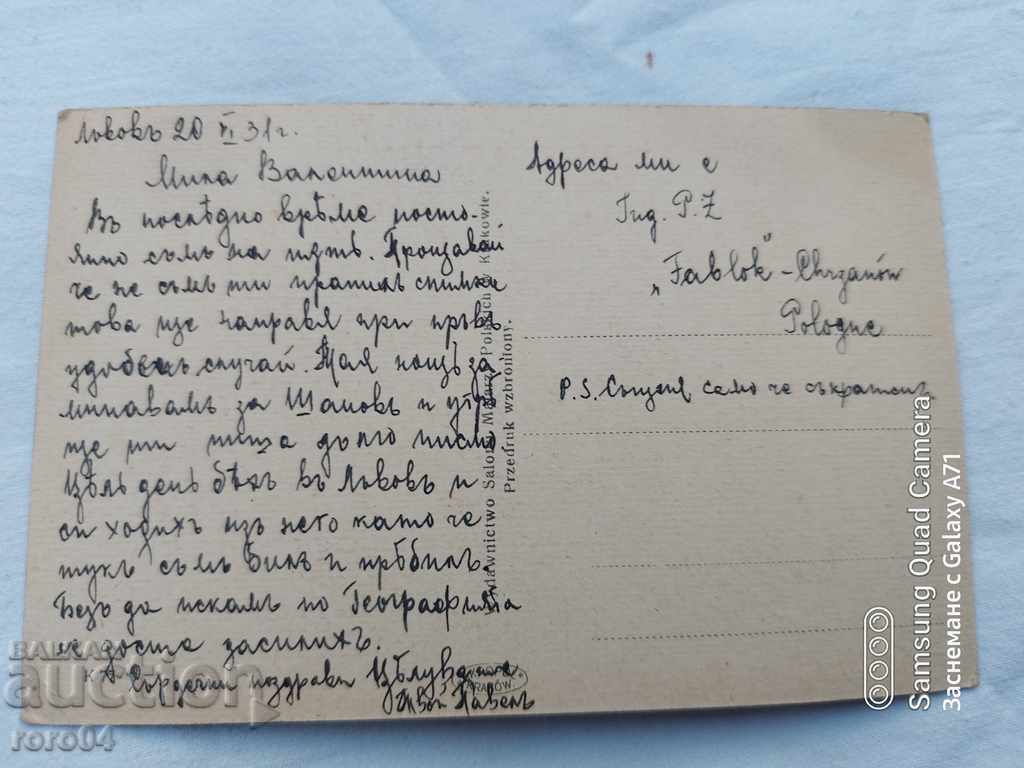 Лвовъ 20 VI 31 г.
Мила Валентина
Въ последно врѣме посто-
янно съмъ на пѫть. Прощавай
че не съмъ ти пратилъ снимки
това ще направя при пръвъ
удобенъ случай. Тая нощь за-
минавамъ за и утрѣ
ще ти пиша дълго писмо
Цѣлъ день бѣхъ въ Лвовъ и
си ходихъ изъ него като че
тукъ съмъ билъ и прѣбилъ.
Безъ да искамъ по Географията
се доста засилихъ.
Сърдечни поздрави Цѣлувам те
Твой Павелъ
Адреса ми е
Инд. P. Z
„Fablok" - Chrzanów
Pologne
P.S. Същия само че съкратенъ
Wydawnictwo Salonu Malarzy Polskich w Krakowie.
Przedruk wzbroniony.
KRAKÓW
BALKAN
auction
roro04
Samsung Quad Camera
Заснемане с Galaxy A71